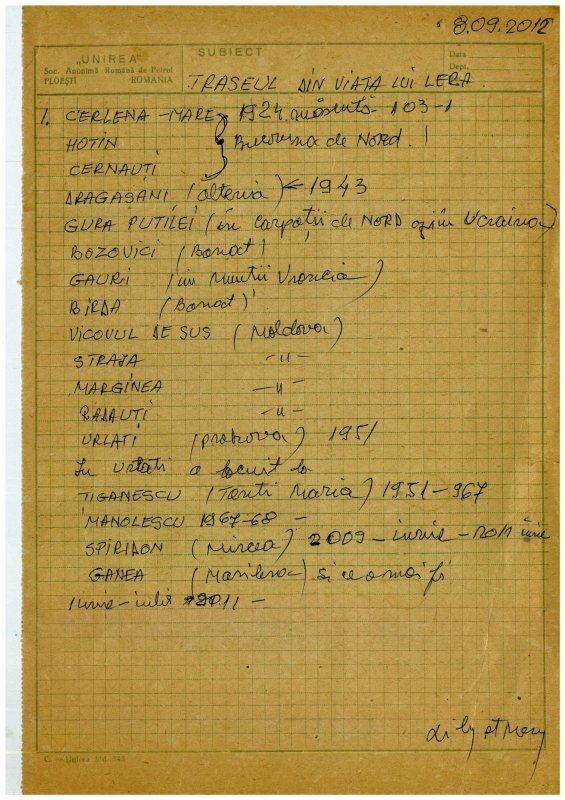 8.09.2012
„UNIREA"
Soc. Anonimă Română de Petrol
PLOEȘTI ROMÂNIA
SUBIECT
Data
Dept.
TRASEUL DIN VIAȚA LUI LERA
1. CERLENA-MARE 1924 născută 103-1
HOTIN Bucovina de Nord !
CERNAUȚI
DRAGAȘANI (Oltenia) ← 1943
GURA PUTILEI (în Carpații de NORD în Ucraina)
BOZOVICI (Banat)
GAURI (în Munții Vrancia)
BIRDA (Banat)
VICOVUL DE SUS (Moldova)
STRAJA -〃-
MARGINEA -〃-
RĂDĂUȚI -〃-
URLAȚI (Prahova) 1951
În Urlați a locuit la
ȚIGANESCU (Tanti Maria) 1951-967
MANOLESCU 1967-68 -
SPIRIDON (Mircea) 2009 - iunie - 2011 iunie
GANEA (Vasilescu) și ce o mai fi
Iunie-iulie 2011 -
C. — Unirea